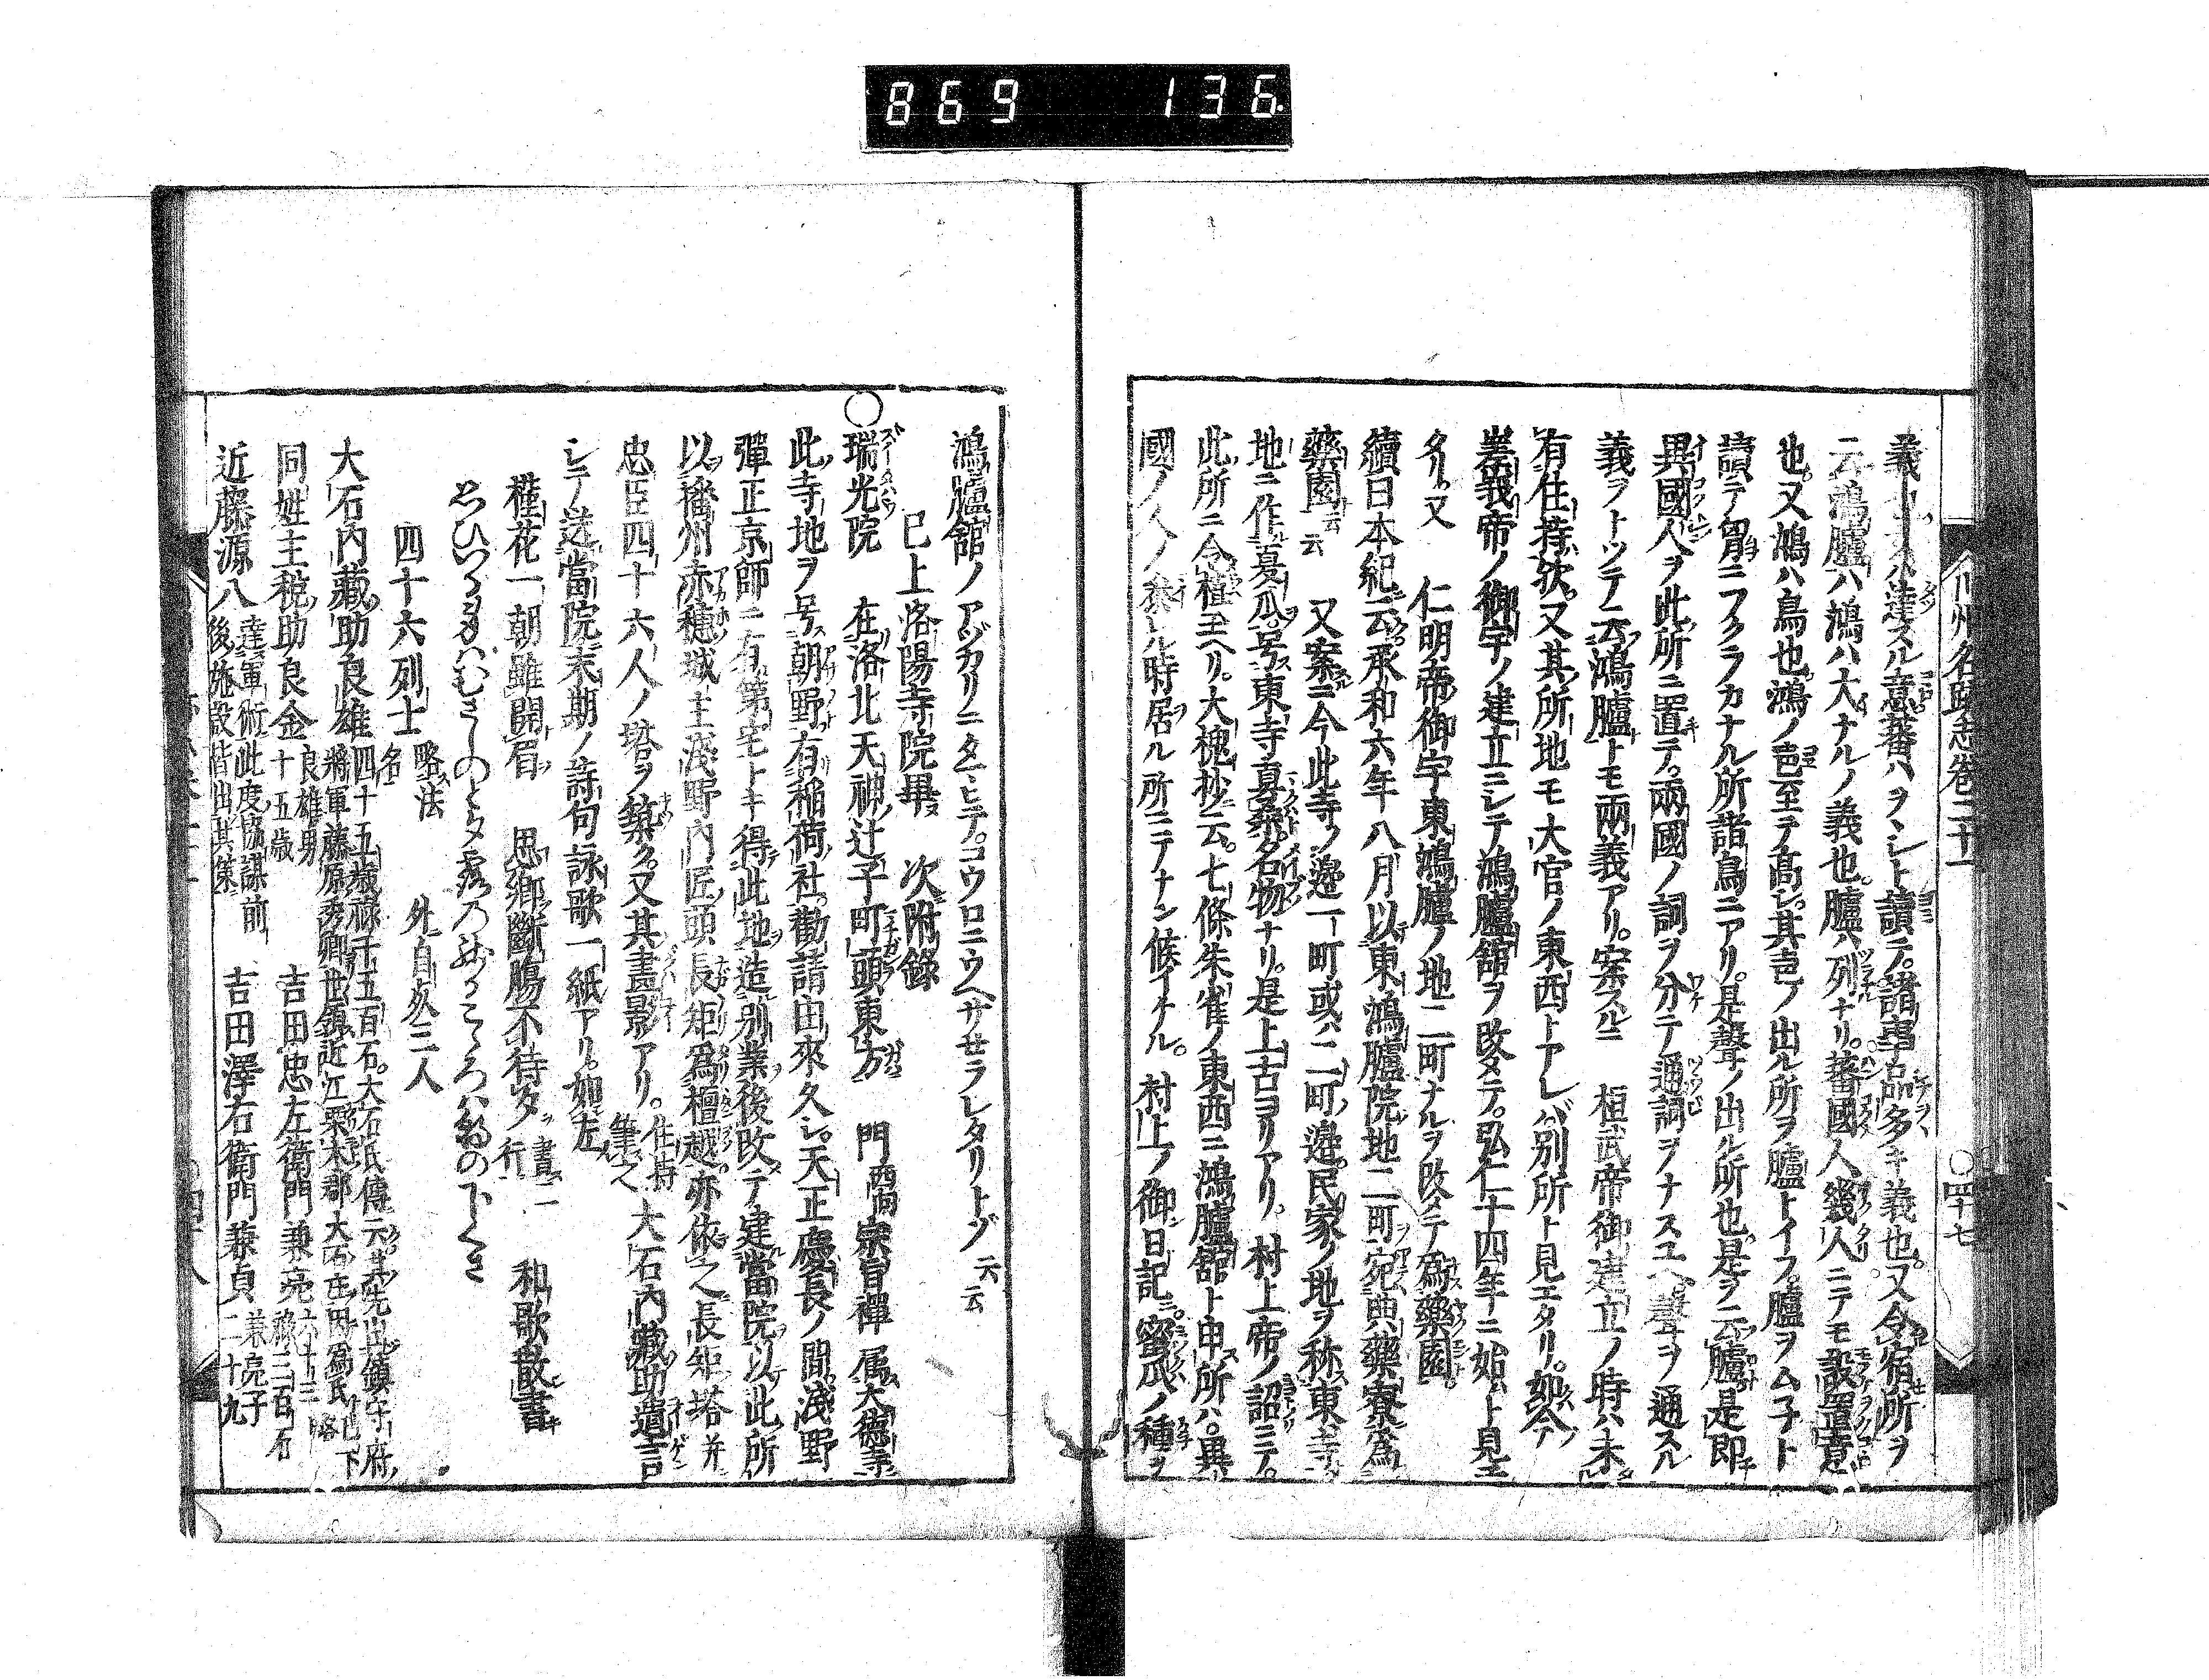 869 136
山州名跡志巻二十一 〇四十七
義ーー八達スル意蕃ハヲシト讀テ。諸事品多キ義也。又令宿所ヲ
云鴻臚ハ鴻ハ大ナルノ義也。臚ハ列ナリ。蕃國人幾人ニテモ設置意
也。又鴻ハ鳥也。鴻ノ邑至テ髙シ。其声ノ出ル所ヲ臚トイフ。臚ヲムネト
讀テ胷ニフクラカナル所諸鳥ニアリ。是聲ノ出ル所也。是ヲ云臚是即
異國人ヲ此所ニ置テ。兩國ノ詞ヲ分テ通詞ヲナスユヘ聲ヲ通スル
義ヲトツテ云鴻臚トモ兩義アリ。案スルニ 桓武帝御建立ノ時ハ未
有住持欤。又其所地モ大宮ノ東西トアレバ別所ト見エタリ。如今
嵯峩帝ノ御宇ノ建立ニシテ鴻臚舘ヲ改タテ。弘仁十四年ニ始ト見エ
タリ。又 仁明帝御宇東鴻臚ノ地二町ナルヲ改タテ為藥園。
續日本紀云承和六年八月以東鴻臚院地二町宛典藥寮為
藥園云云 又案ニ今此寺ノ邊一町或ハ二町邊民家ノ地ヲ称東寺
地ニ作夏瓜。号東寺真桑。名物ナリ。是上古ヨリアリ。 村上帝ノ詔ニテ。
此所ニ令種至ヘリ。大槐抄云。七條朱雀ノ東西ニ鴻臚舘ト申所ハ。異
國ノ人ノ來レル時居ル所ニテナン候イケル。 村上ノ御日記ニ。蜜瓜ノ種ヲ
鴻臚舘ノアヅカリニタヒテ。コウロニウヘサセラレタリトゾ云云
已上洛陽寺院畢 次附錄
〇瑞光院 在洛北天神辻子町頭東方 門西向宗旨禪 属大德寺
此寺地ヲ号朝野。有稲荷社。勸請由來久シ。天正慶長ノ間浅野
彈正京師ニ有第宅トキ得此地造別業後改テ建當院以此所
以播州赤穂城主浅野内匠頭長矩爲檀越。亦依之長矩塔并
忠臣四十六人ノ塔ヲ築ク。又其畫影アリ。住持筆之 大石内藏助遺言
シテ送當院末期ノ詩句詠歌一紙アリ。如左
槿花一朝雖開眉 思郷斷膓不待夕書一行 和歌散書
四十六列士略法名 外自夾三人
大石内藏助良雄四十五歳祿千五百石。大石氏傳云其先出鎮守府将軍藤原秀卿世領近江栗木郡大石庄因爲氏已下略
同姓主税助良金良雄男十五歳 吉田忠左衛門兼亮六十三祿二百石
近藤源八達軍術此度協謀前後施設皆出其策 吉田澤右衛門兼貞兼亮子二十九